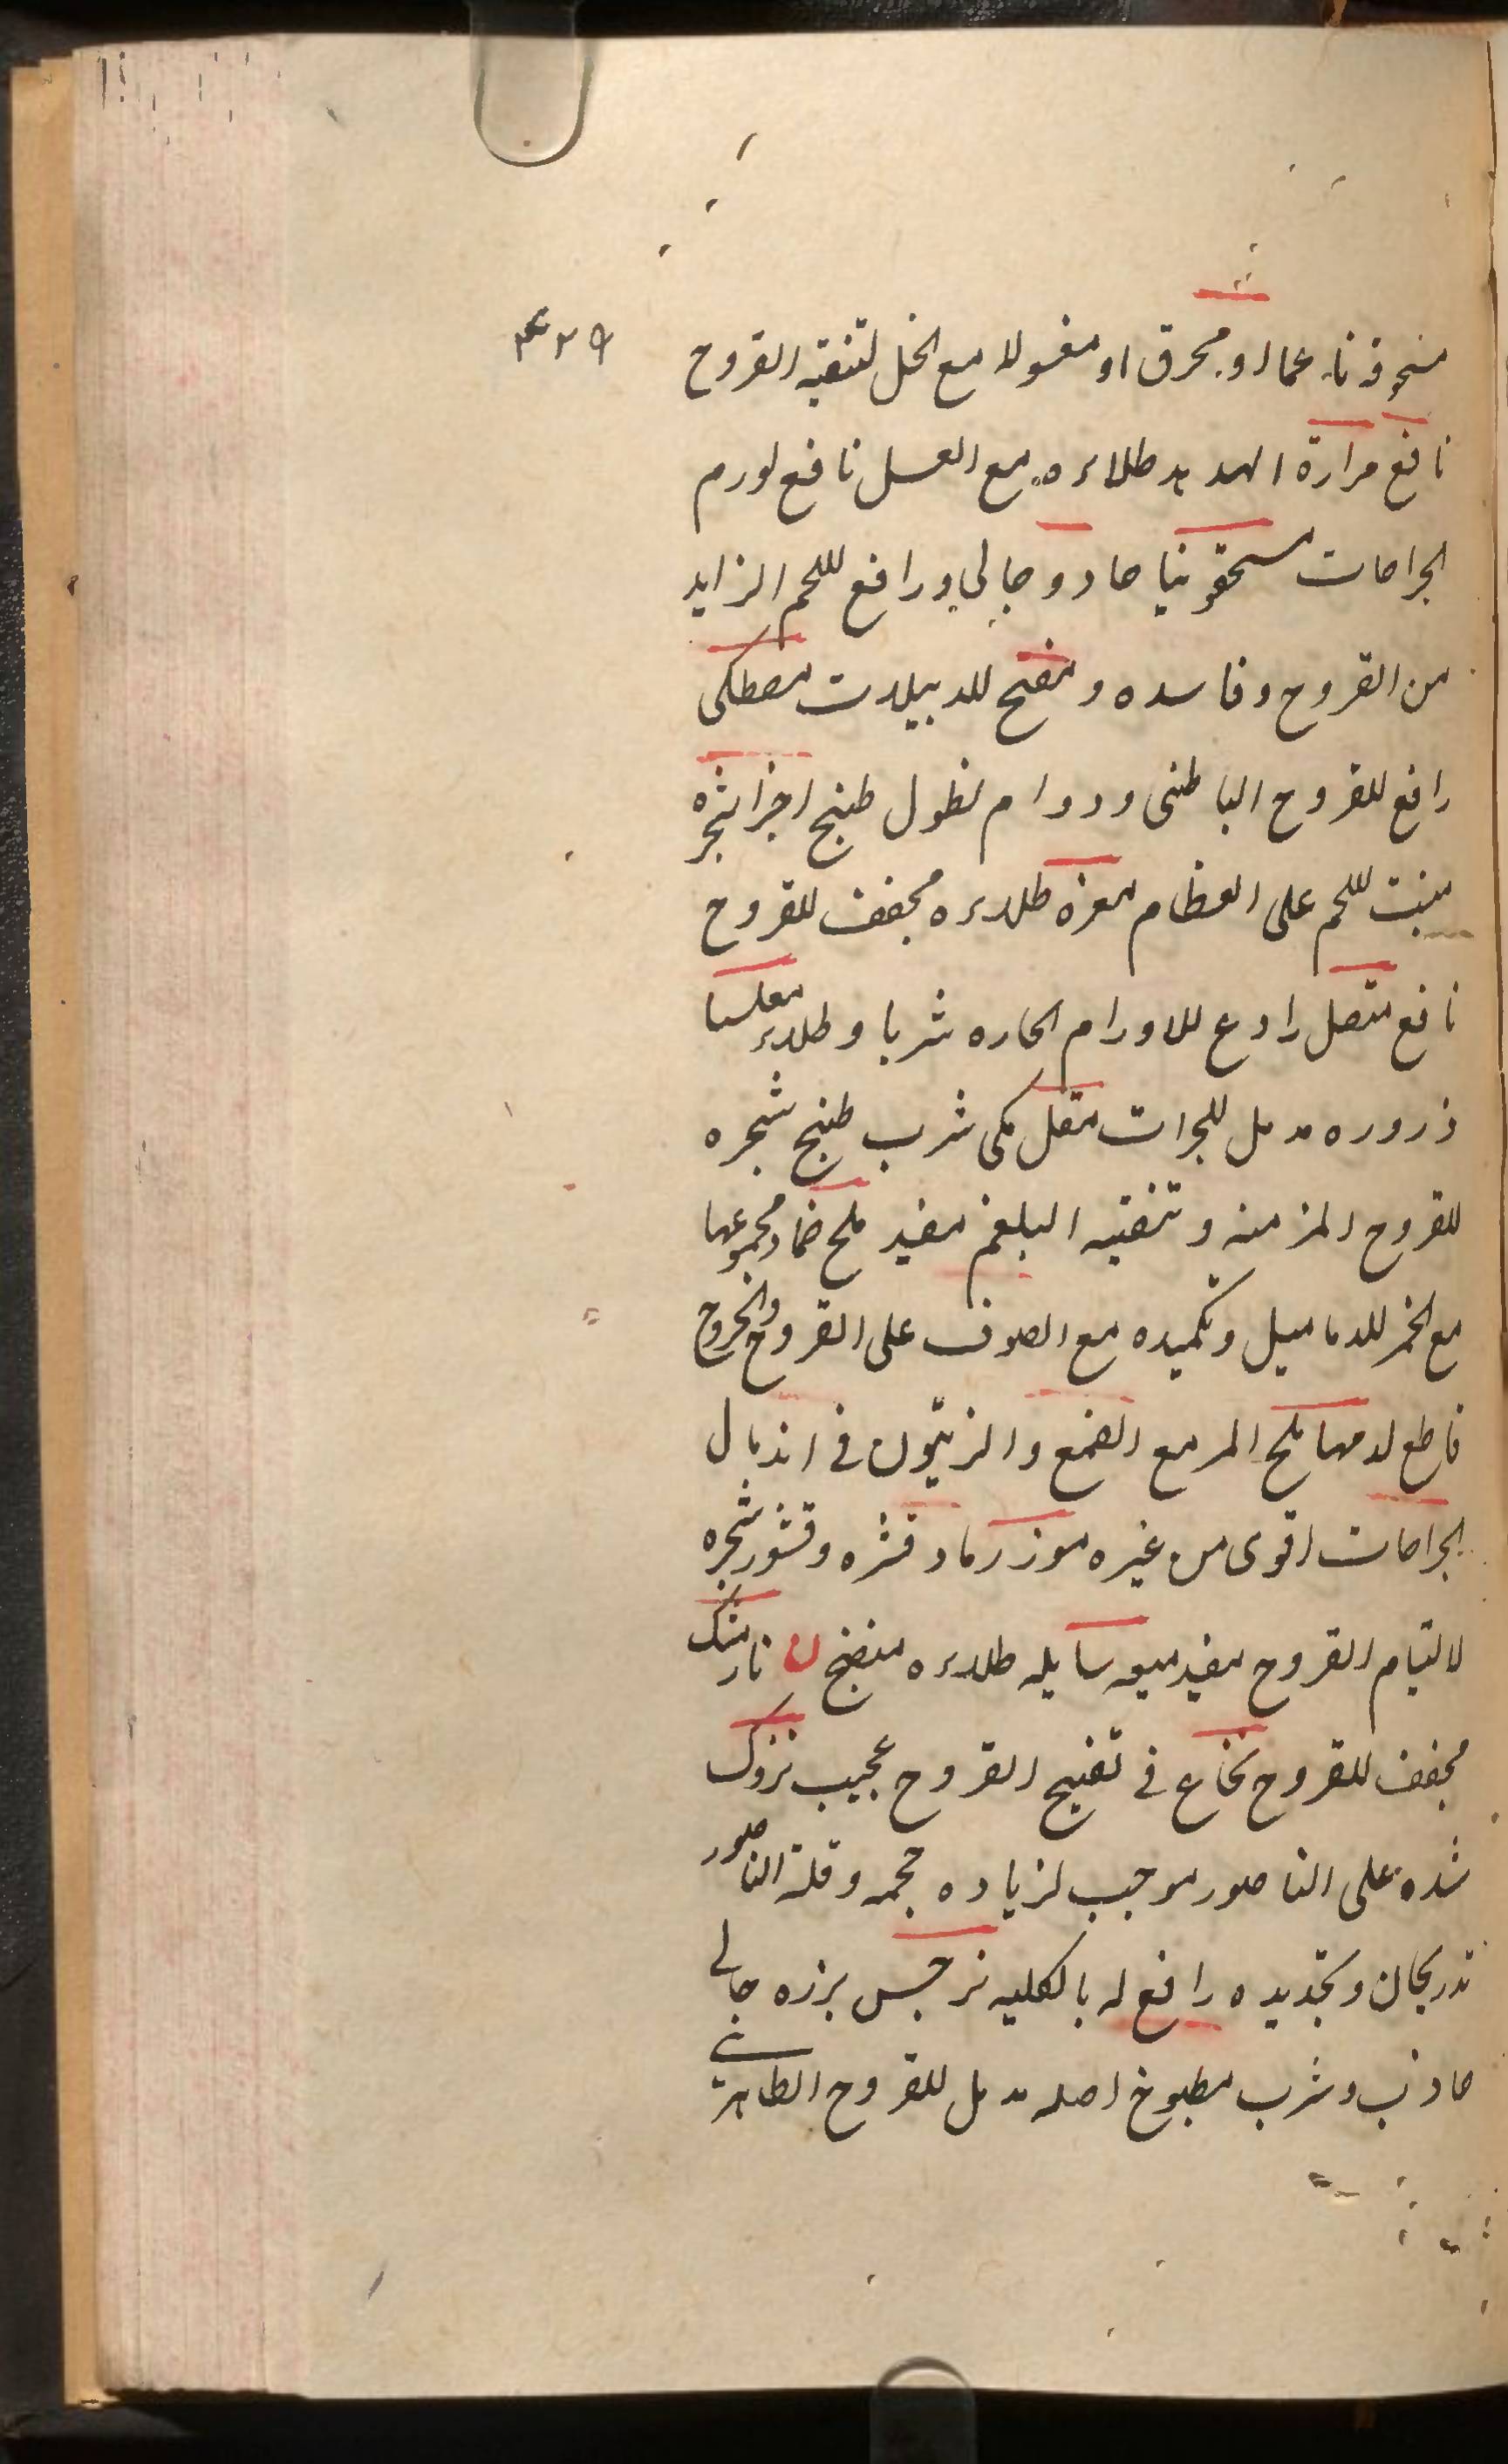 مع الخل لتنقيه القروح او مغسولا او محرق
نافع مرارة الهدهد طلاءه مع العسل نافع لورم
الجراحات مسحقونيا حاد و جالي و رافع للحم الزايد
من القروح و فاسده و مفتح للدبيلات مصطكى
رافع للقروح الباطنى و دوام نطول طبخ اجزا شجره
منبت للحم على العظام مغره طلاءه مجفف للقروح
نافع مقل رادع للاورام الحاره شربا و طلاء مغلسا
ذروره مدمل للجرات مقل مكى شرب طبخ شجره
للقروح المزمنه و تنقيه البلغم مفيد ملح ضماد مجموعها
مع الخمر للدماميل و تكميده مع الصوف على القروح والجروح
قاطع لدمها ملح المر مع الصمغ والزيتون فى اندمال
الجراحات اقوى من غيره موز رماد قشره و قشور شجره
لالتيام القروح مفيد ميعه سايله طلاءه منضج ن نارمشك
مجفف للقروح نخاع فى تفتيح القروح عجيب نزوك
شده على الناصور موجب لزياده حجمه و قلة الناصور
تدريجان و تجديده رافع له بالكليه نرجس بزره جالى
جاذب و شرب مطبوخ اصله مدمل للقروح الظاهرة